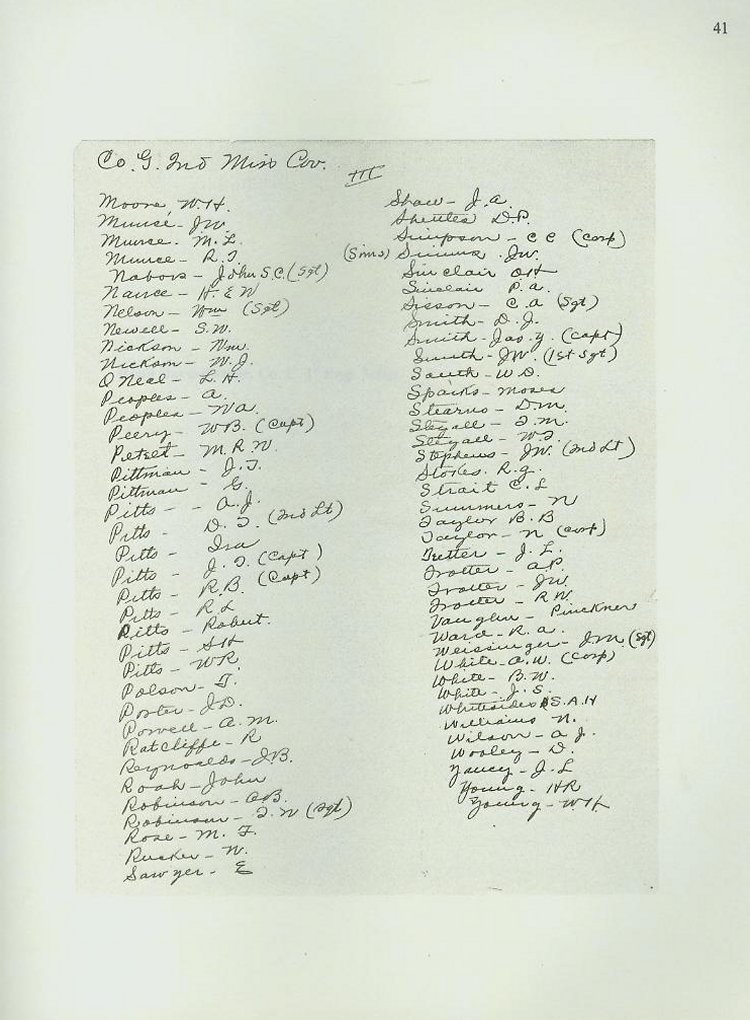 41
Co. G. 2nd Miss Cav.
III
Moore W.H.
Munsé - J.W.
Munse. M.L.
Munce - R.J.
Nabors - John S.C. (Sgt)
Nance - H.E.W
Nelson - Wm (Sgt)
Newell - S.W.
Nickson - Wm.
Nickson - W.J.
O'Neal - L.H.
Peoples - A.
Peoples - W.A.
Peery - W.B. (Capt)
M.R.W.
Pittman - J.T.
Pittman - G.
Pitts - A.J.
Pitts - D.T. (2nd Lt)
Pitts - Ira
Pitts - J.T. (Capt)
Pitts - R.B. (Capt)
Pitts - R L
Pitts - Robert.
Pitts - S H
Pitts - W R.
Polson - T.
Porter - J.D.
Powell - A.M.
Ratcliffe - R
Reynolds - J.B.
Roah - John
Robinson - O.B.
Robinson - T.W (Sgt)
Rose - M.F.
Rucker - N.
Sawyer - E
Shaw - J.A.
D.P.
Simpson - C C (Corp)
(Sims) Simms J.W.
Sinclair O H
Sinclair P.A.
Sisson - C.A (Sgt)
Smith - D.J.
Smith - Jas. Y. (Capt)
Smith - J.W. (1st Sgt)
South - W D.
Sparks - Moses
Stearns - D.M.
Stegall - F.M.
Stegall - W.F.
Stephens - J.W. (2nd Lt)
Stokes. R.G.
Strait C.L
Summers - N
Taylor B.B
Taylor - N (Corp)
Tretter - J.L.
Trotter - A.P.
Trotter - J.W.
Trotter - R.W.
Vaughn - Pinckner
Ward - R.A.
Weissinger - J.M. (Sgt)
White - A.W. (Corp)
White - B.W.
White - J.S.
Whitesides S.A.H
Williams N.
Wilson - A J.
Wooley - D.
Yancy - J.L
Young - H R
Young - W H